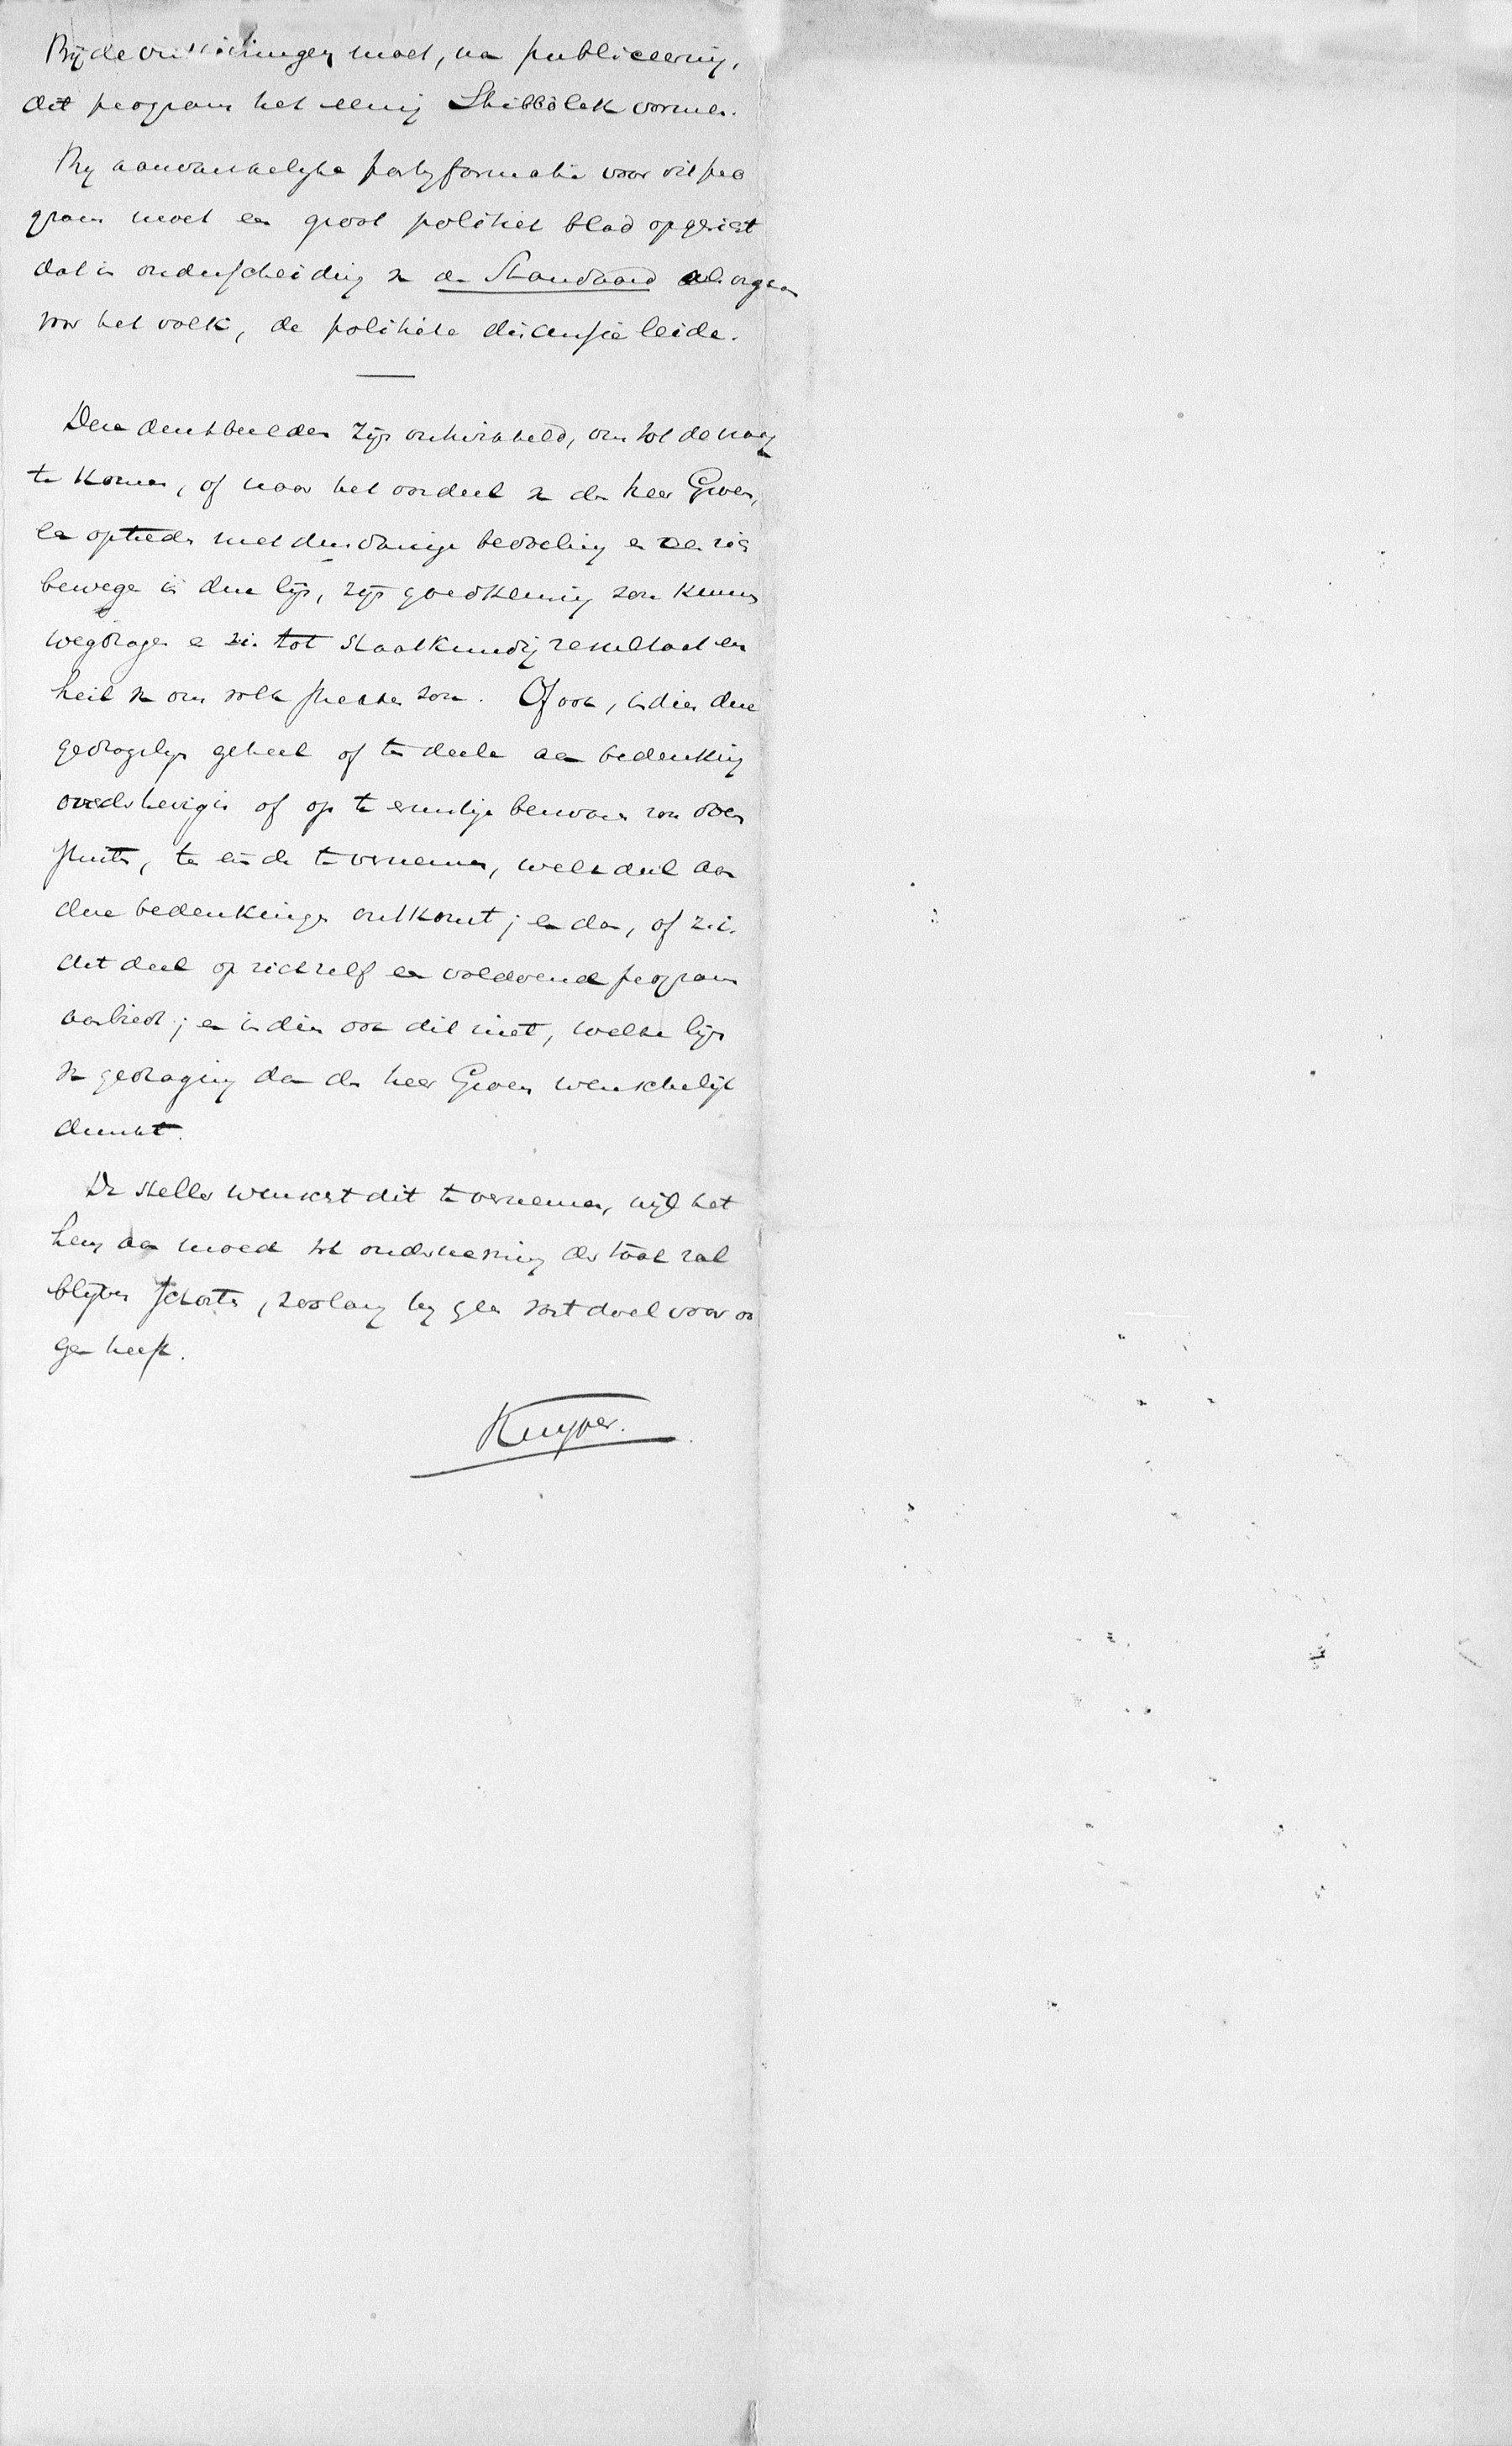 Bij de verkiezingen moet, na publiceering,
dit program het eenig Shibbôleth vormen.
By aanvankelyke partyformatie voor dit pro
gram moet een groot politiek blad opgericht
dat in onderscheiding v. de Standaard als orgaan
voor het volk, de politieke discussie leide.
Deze denkbeelden zijn ontwikkeld, om tot de vraag
te komen, of naar het oordeel v. den heer Groen,
een optreden met dusdanige bedoeling en een zich
bewegen in deze lijn, zijn goedkeuring zou kunnen
wegdragen en z.i. tot staatkundig resultaat en
heil v. ons volk strekken zou. Of ook, indien deze
gedragslijn geheel of ten deele aan bedenking
onderhevig is of op te ernstige bezwaren zou
stuiten, ten einde te vernemen, welk deel aan
deze bedenkingen ontkomt; en dan, of z.i.
dit deel op zichzelf een voldoend program
aanbiedt; en indien ook dit niet, welke lijn
v. gedraging dan den heer Groen wenschelijk
dunkt.
De steller wenscht dit te vernemen, wijl het
hem aan moed tot onderneming der taak zal
blijven schorten, zoolang hy geen vast doel voor oo
gen heeft.
Kuyper.